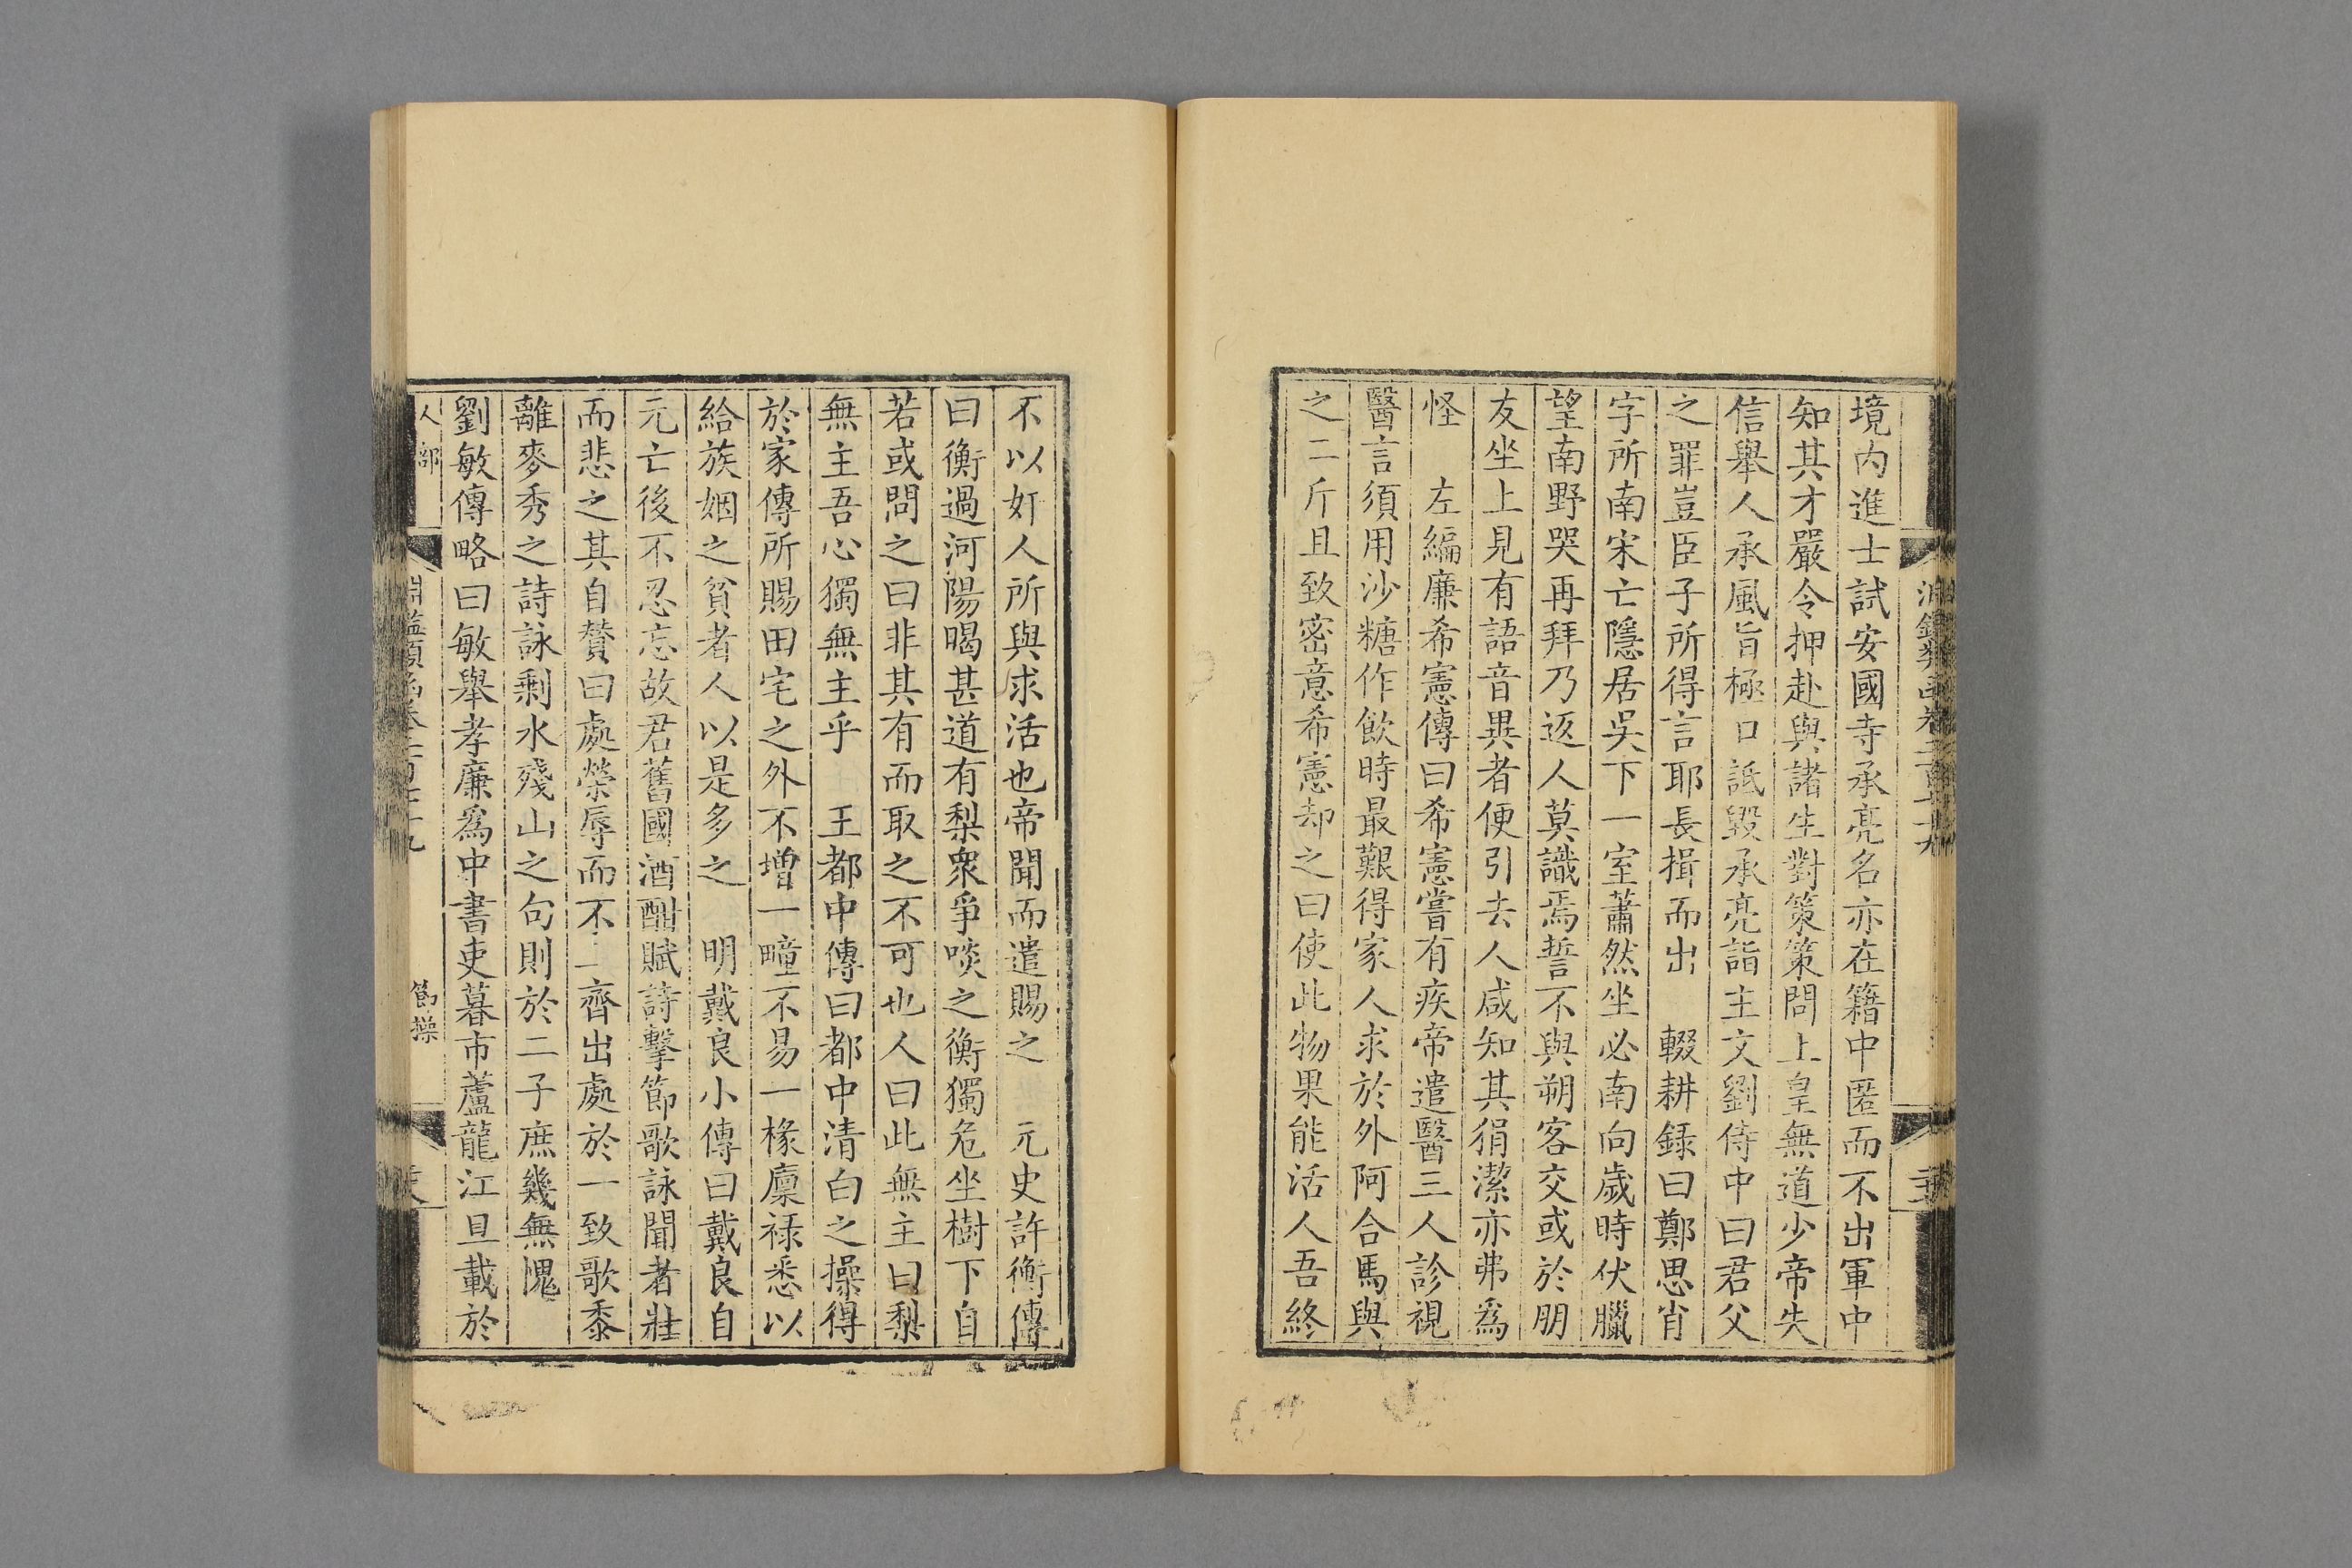 境内進士試安國寺承亮名亦在籍中匿而不出軍中
知其才嚴令押赴與諸生對策策問上皇無道少帝失
信舉人承風旨極口詆毀承亮詣主文劉侍中曰君父
之罪豈臣子所得言耶長揖而出　輟耕錄曰鄭思肖
字所南宋亡隱居吳下一室蕭然坐必南向歲時伏臘
望南野哭再拜乃返人莫識焉誓不與朔客交或於朋
友坐上見有語音異者便引去人咸知其狷潔亦弗爲
怪　左編廉希憲傳曰希憲嘗有疾帝遣醫三人診視
醫言須用沙糖作飲時最艱得家人求於外阿合馬與
之二斤且致密意希憲却之曰使此物果能活人吾終
不以奸人所與求活也帝聞而遣賜之　元史許衡傳
曰衡過河陽暍甚道有梨衆爭啖之衡獨危坐樹下自
若或問之曰非其有而取之不可也人曰此無主曰梨
無主吾心獨無主乎　王都中傳曰都中清白之操得
於家傳所賜田宅之外不增一疃不易一椽廩禄悉以
給族姻之貧者人以是多之　明戴良小傳曰戴良自
元亡後不忍忘故君舊國酒酣賦詩擊節歌詠聞者壯
而悲之其自賛曰處榮辱而不二齊出處於一致歌黍
離麥秀之詩詠剩水殘山之句則於二子庶幾無愧
劉敏傳略曰敏舉孝廉爲中書吏暮市蘆龍江旦載於
人部
節操